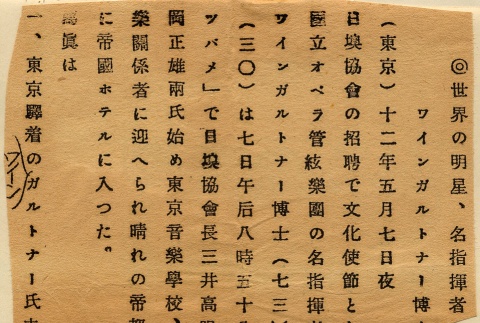 ◎世界の明星、名指揮者
ワインガルトナー博
(東京)十二年五月七日夜
日墺協會の招聘で文化使節と
國立オペラ管絃樂團の名指揮
ワインガルトナー博士(七三
(三〇)は七日午后八時五十
ツバメ」で日墺協會長三井高
岡正雄兩氏始め東京音樂學校、
樂關係者に迎へられ晴れの帝都
に帝國ホテルに入つた。
寫眞は
一、東京驛着のガルトナー氏
ワイン